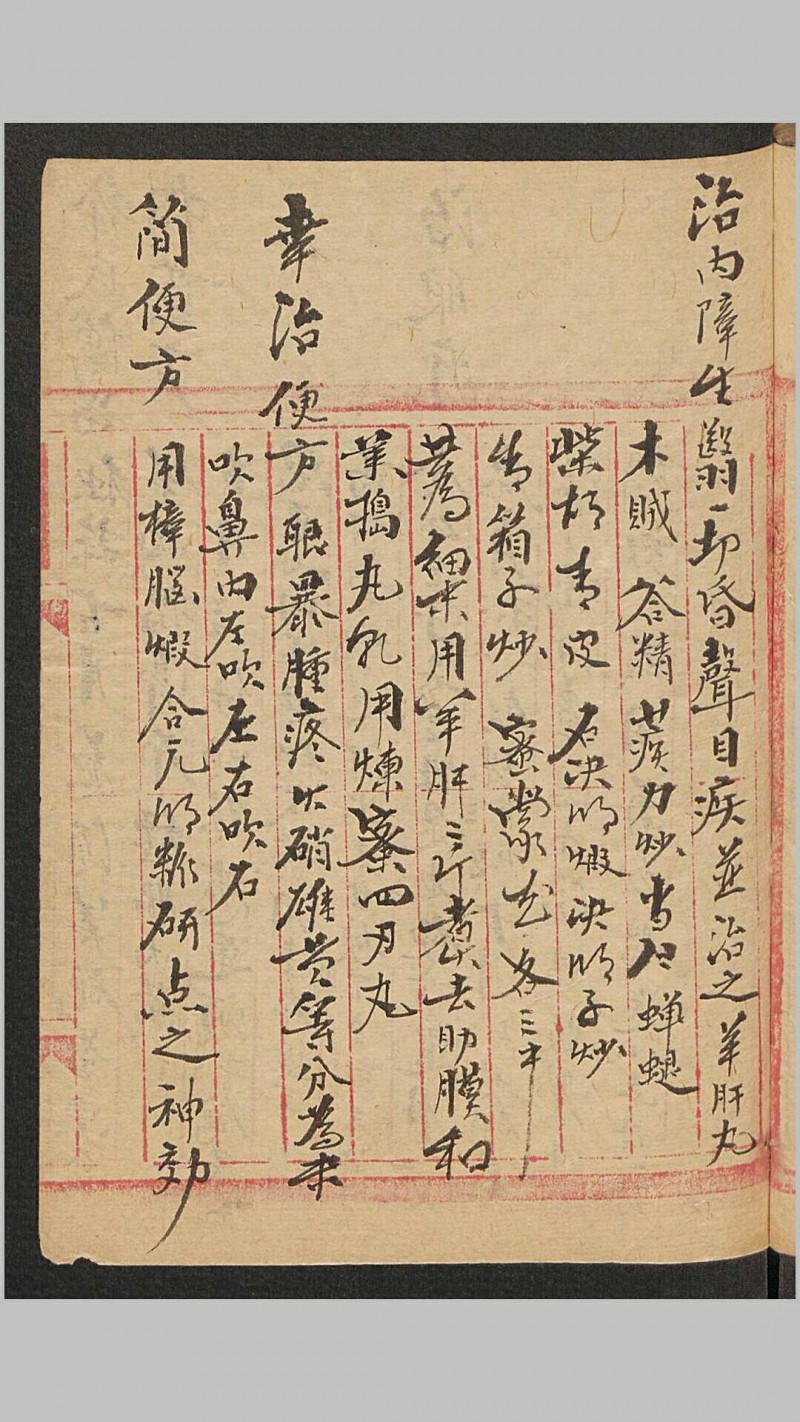 治内障生翳一切昏瞽目疾並治之羊肝丸
木賊 苍精 蒺力炒 当 蝉蜕
柴胡 青皮 石决明煅 决明子炒
青箱子炒 蜜蒙花 各三
共為細末用羊肝三 煮去肋膜和
末搗丸 用煉蜜四 丸
睾治便方 眼暴腫疼火硝雄黄等分為末
吹鼻内左吹左右吹右
简便方 用樟腦煅合 明 研点之神効